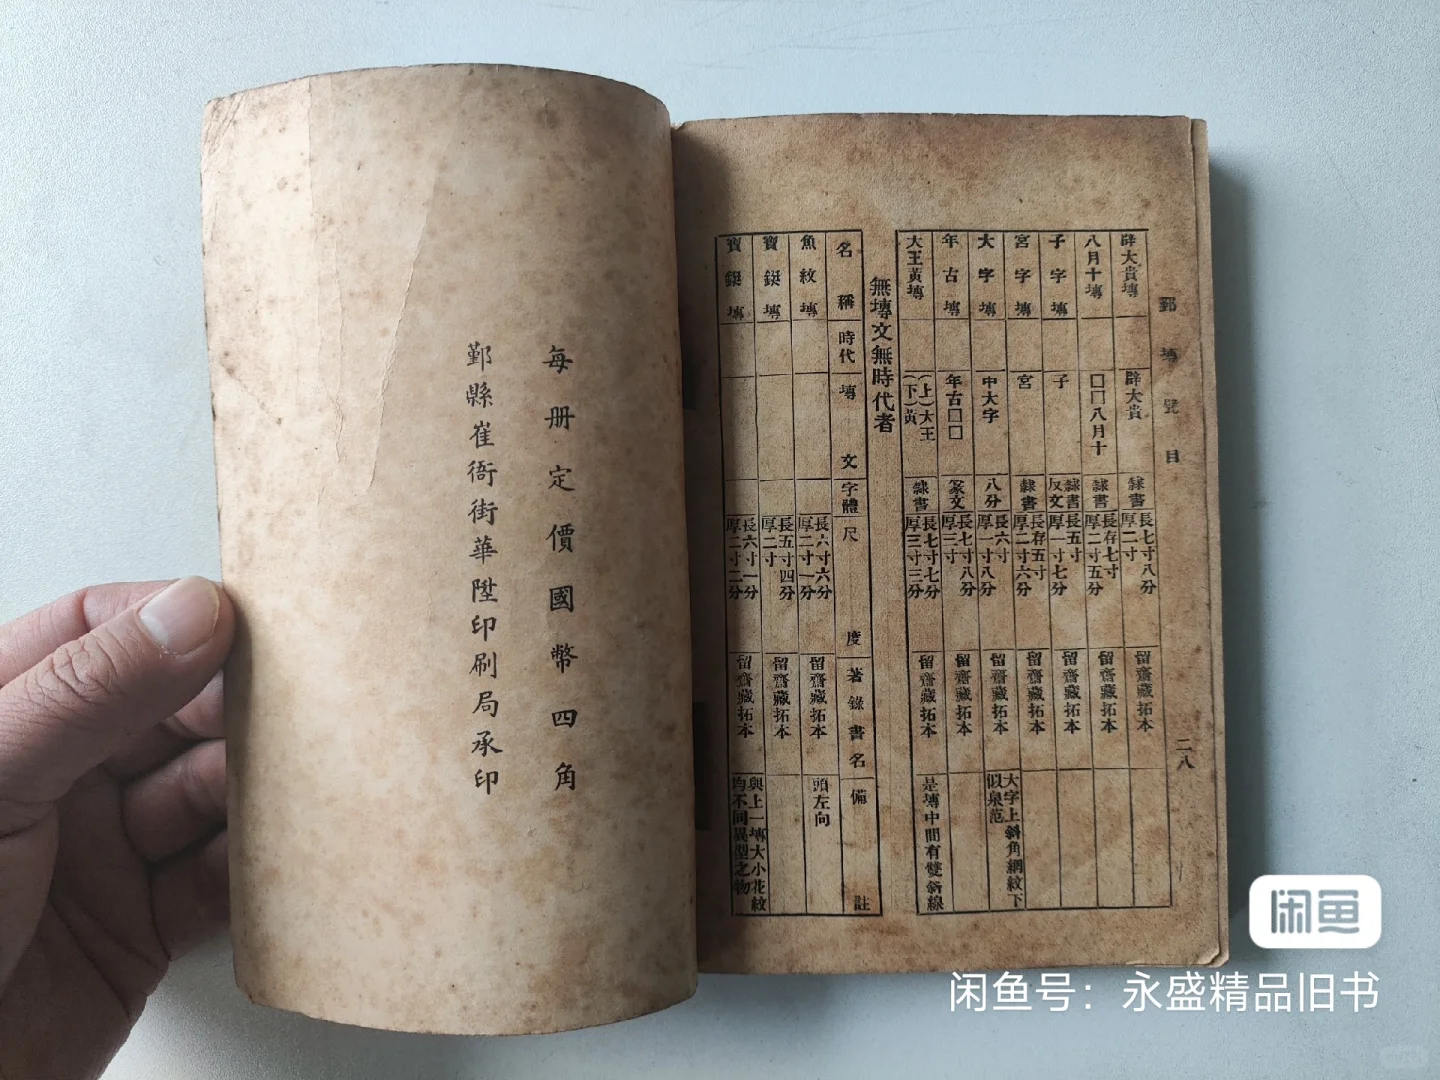 鄞塼覽目
二八
辟大貴塼 辟大貴 隸書 長七寸八分 厚二寸 留齋藏拓本
八月十塼 □□八月十 隸書 長存七寸 厚二寸五分 留齋藏拓本
子字塼 子 隸書反文 長五寸 厚一寸七分 留齋藏拓本
宮字塼 宮 隸書 長存五寸 厚二寸六分 留齋藏拓本
大字塼 中大字 八分 長六寸 厚一寸八分 留齋藏拓本 大字上斜角網紋下似泉范
年古塼 年古□□ 篆文 長七寸八分 厚三寸 留齋藏拓本
大王黃塼 (上)大王 (下)黃 隸書 長七寸七分 厚三寸三分 留齋藏拓本 是塼中間有雙斜線
無塼文無時代者
名稱 時代 塼文 字體 尺度 著錄書名 備註
魚紋塼 長六寸六分 厚二寸一分 留齋藏拓本 頭左向
寶鋌塼 長五寸四分 厚二寸 留齋藏拓本
寶鋌塼 長六寸一分 厚二寸二分 留齋藏拓本 與上一塼大小花紋均不同異型之物
每册定價國幣四角
鄞縣崔衙街華陞印刷局承印
闲鱼
闲鱼号：永盛精品旧书